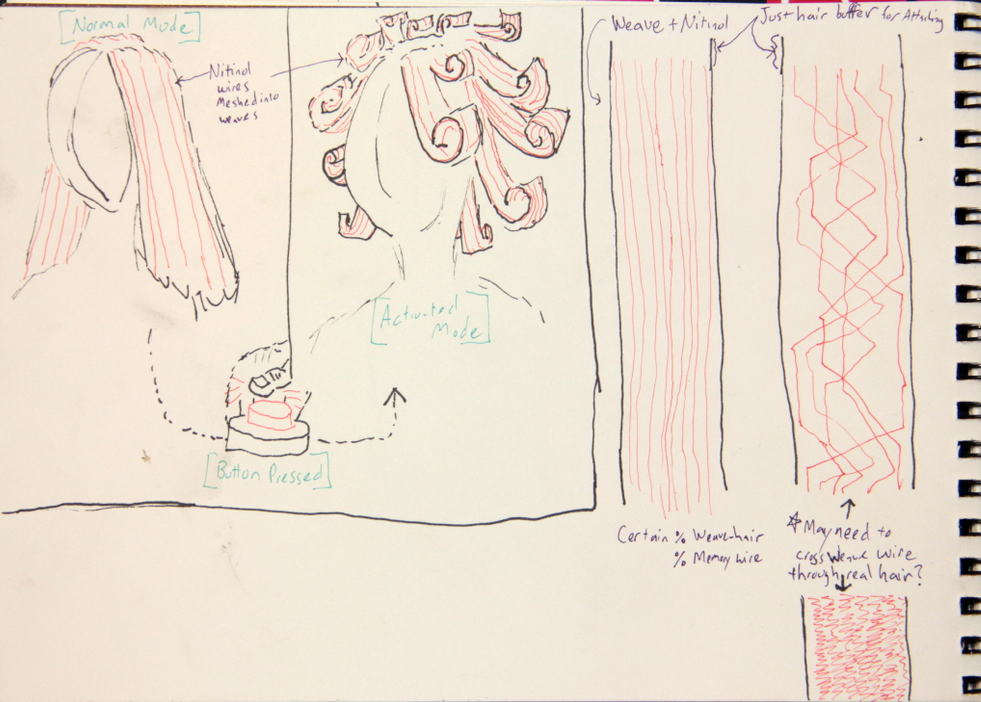 [Normal Mode]
Nitinol
wires
Meshed into
weaves
[Activated
Mode]
[Button Pressed]
Weave + Nitinol
Just hair buffer for Attaching
Certain % Weave-hair
% Memory wire
* May need to
cross weave wire
through real hair?